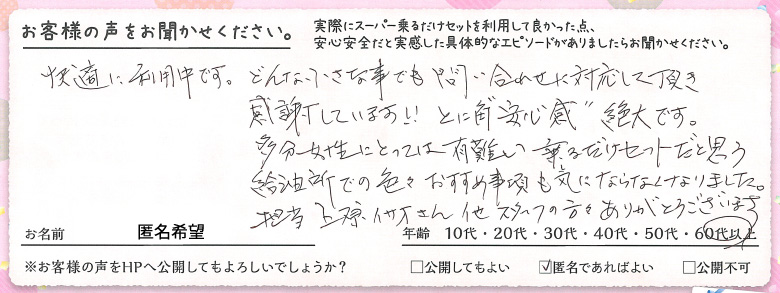 お客様の声をお聞かせください。
実際にスーパー乗るだけセットを利用して良かった点、
安心安全だと実感した具体的なエピソードがありましたらお聞かせください。
快適に利用中です。どんな小さな事でも問い合わせに対応して頂き
感謝しています!! とにかく"安心感"絶大です。
多分女性にとっては有難い乗るだけセットだと思う
給油所での色々おすすめ事項も気にならなくなりました。
担当 上原 さん 他 スタッフの方々ありがとうございます
お名前 匿名希望
年齢 10代・20代・30代・40代・50代・60代以上
※お客様の声をHPへ公開してもよろしいでしょうか? □公開してもよい ☑匿名であればよい □公開不可